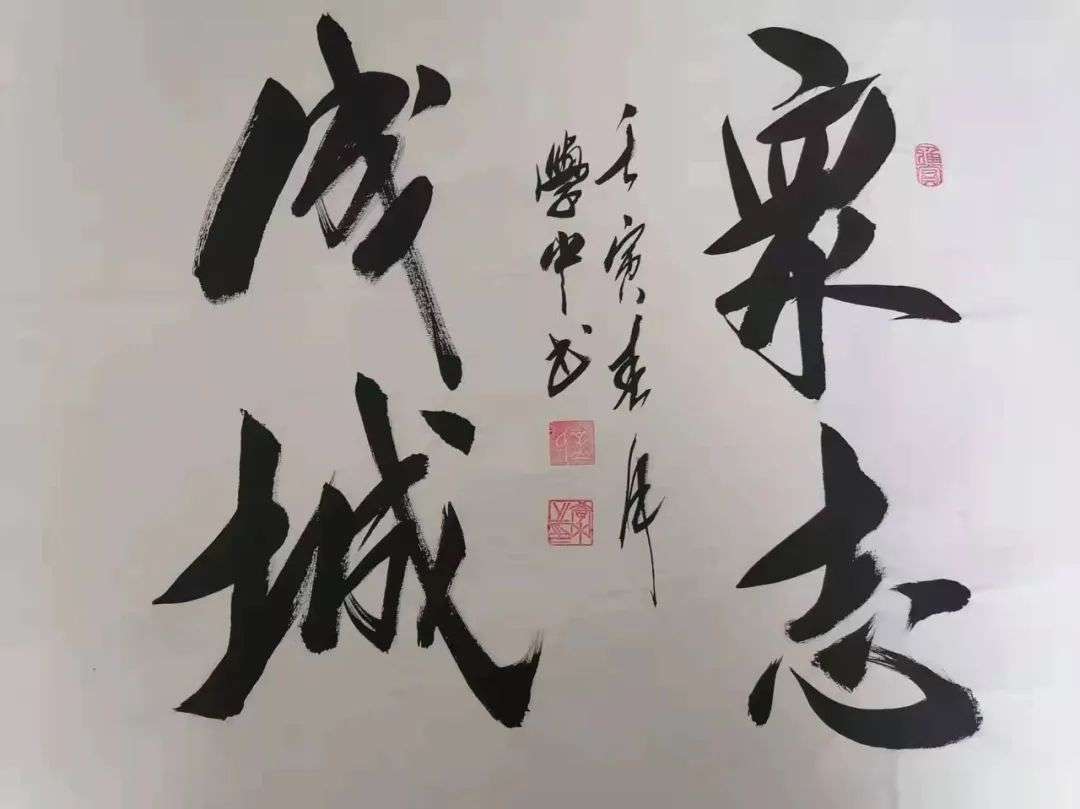 眾志
成城
壬寅春月
學中书